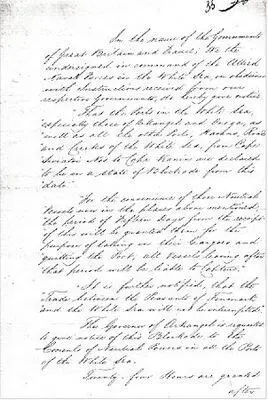 36
In the name of the Governments
of Great Britain and France, We the
undersigned in command of the Allied
Naval Forces in the White Sea, in obedience
with Instructions received from our
respective Governments, do hereby give notice
That the Ports in the White Sea,
especially those of Archangel and Onega, as
well as all the other Ports, Havens, Roads
and Creeks of the White Sea, from Cape
Nos to Cape Kanin are declared
to be in a State of Blockade from this
date.
For the convenience of those Neutral
Vessels now in the places above mentioned,
the period of Fifteen Days from the receipt
of this will be granted them for the
purpose of taking in their Cargoes and
quitting the Port, all Vessels leaving after
that period will be liable to Capture.
It is further notified, that the
Trade between the Peasants of Finmark
and the White Sea will not be interrupted.
The Governor of Archangel is requested
to give notice of this Blockade to the
Consuls of Neutral Powers in all the Ports
of the White Sea.
Twenty-four Hours are granted
after